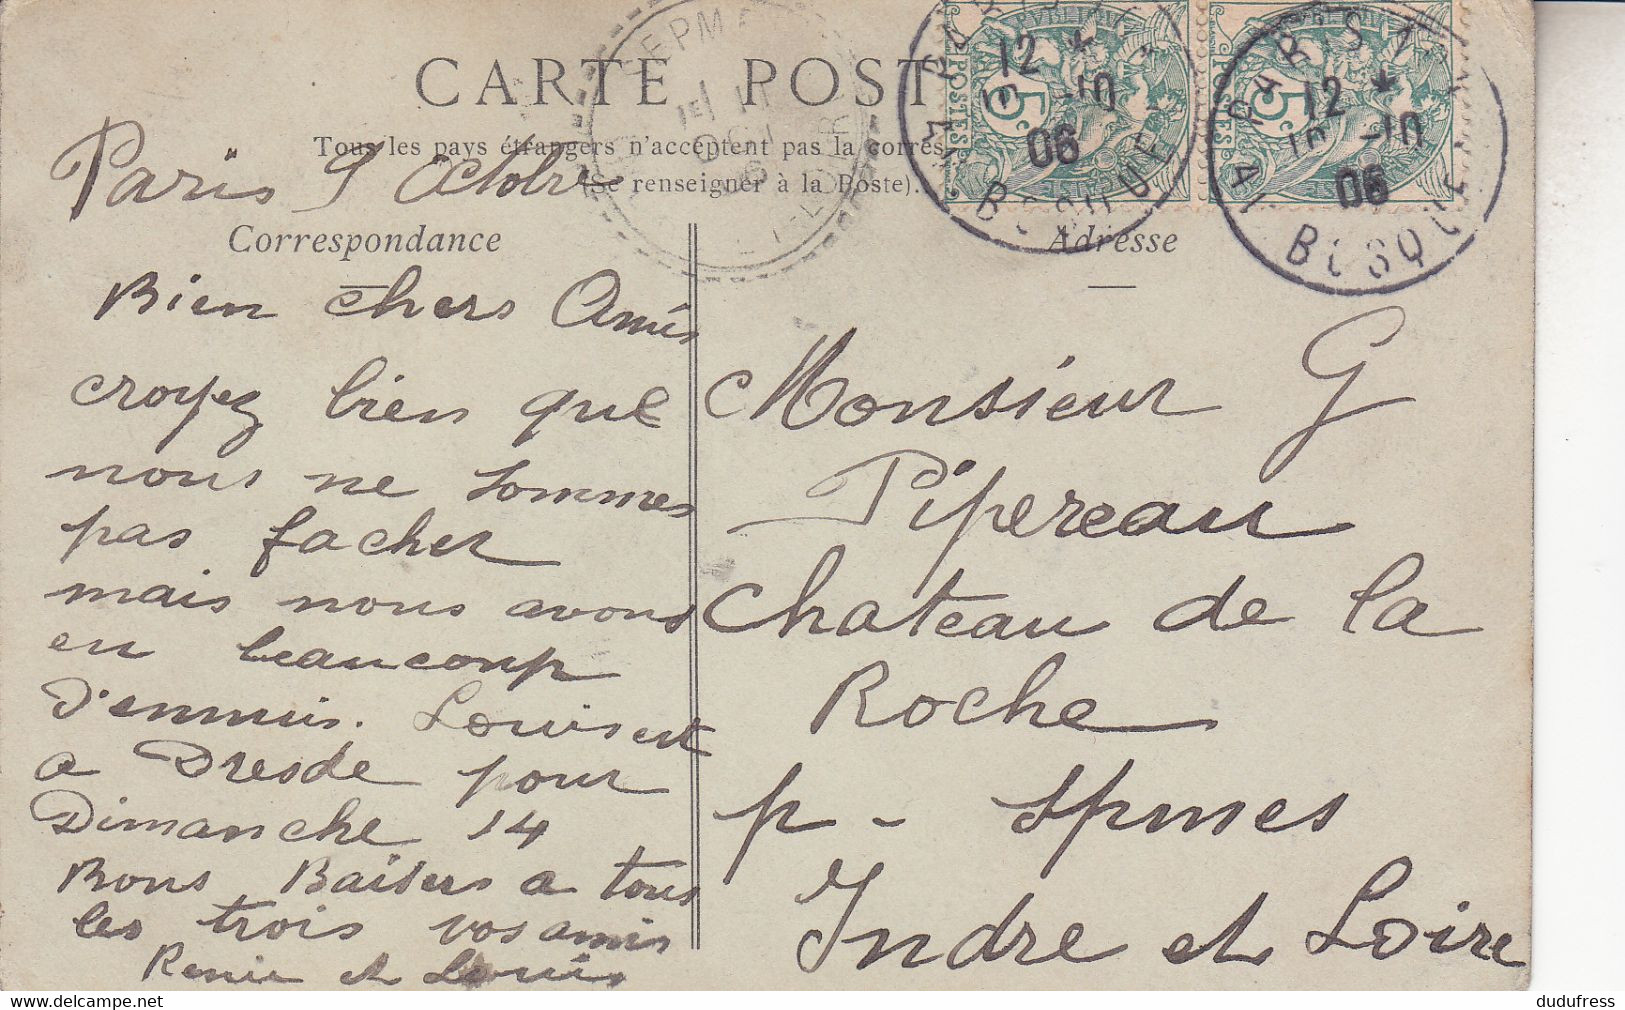 CARTE POST
Tous les pays étrangers n'acceptent pas la corres
(Se renseigner à la Poste).
Paris 9 Octobre
Correspondance
Adresse
Bien chers Amis
croyez bien que
nous ne sommes
pas facher
mais nous avons
eu beaucoup
d'ennuis. Louis est
a Dresde pour
Dimanche 14
Bons Baisers a tous
les trois vos amis
et Louis
Monsieur G
Pipereau
Chateau de la
Roche
p - Epmes
Indre et Loire
POSTES 5c
POSTES 5c
12 *
-10
06
BOSQUE
12 *
-10
06
BOSQUE
dudufress